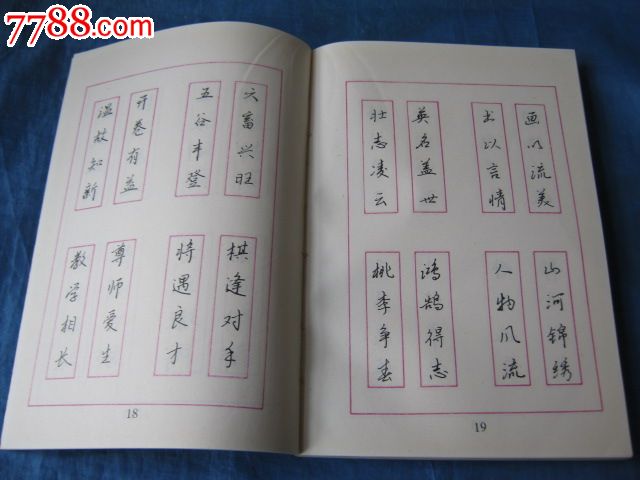 7788.com
六畜兴旺
五谷丰登
开卷有益
温故知新
棋逢对手
将遇良才
尊师爱生
教学相长
18
画以流美
书以言情
英名盖世
壮志凌云
山河锦绣
人物风流
鸿鹄得志
桃李争春
19